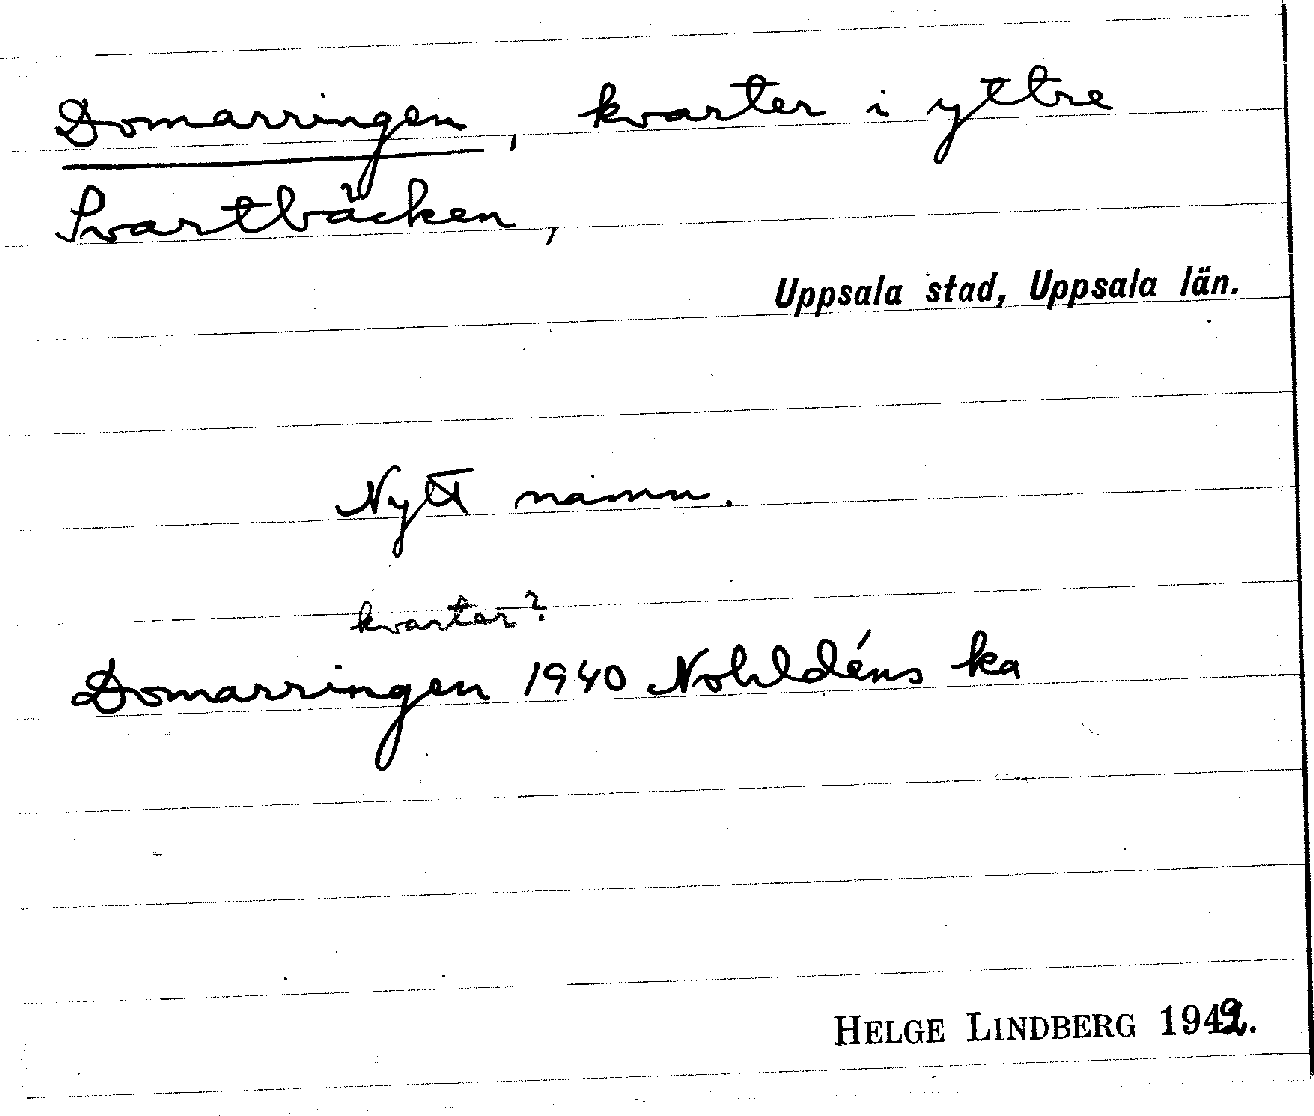 Domarringen, kvarter i yttre
Svartbäcken,
Uppsala stad, Uppsala län.
Nytt namn.
kvarter?
Domarringen 1940 Nohldéns ka
HELGE LINDBERG 1942.